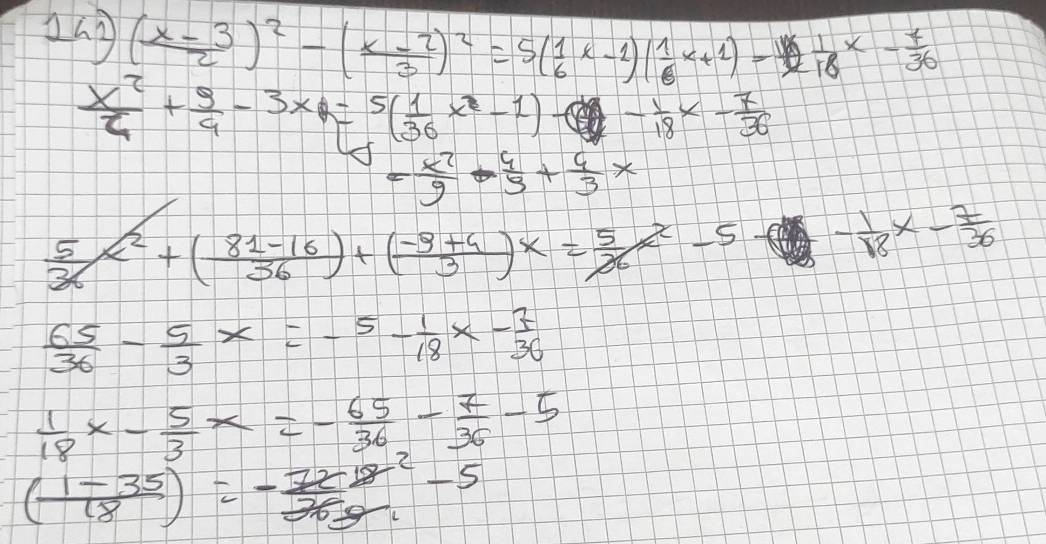 142) ((x-3)/2)² - ((x-2)/3)² = 5(1/6 x - 1)(1/6 x + 1) - 1/18 x - 7/36
x²/4 + 9/4 - 3x = 5(1/36 x² - 1) - 1/18 x - 7/36
- x²/9 - 4/9 + 4/3 x
5/36 x² + ((81-16)/36) + ((-9+4)/3)x = 5/36 x² - 5 - 1/18 x - 7/36
65/36 - 5/3 x = - 5 - 1/18 x - 7/36
1/18 x - 5/3 x = - 65/36 - 7/36 - 5
((1-35)/18) = - 72/36 18/9 2 - 5